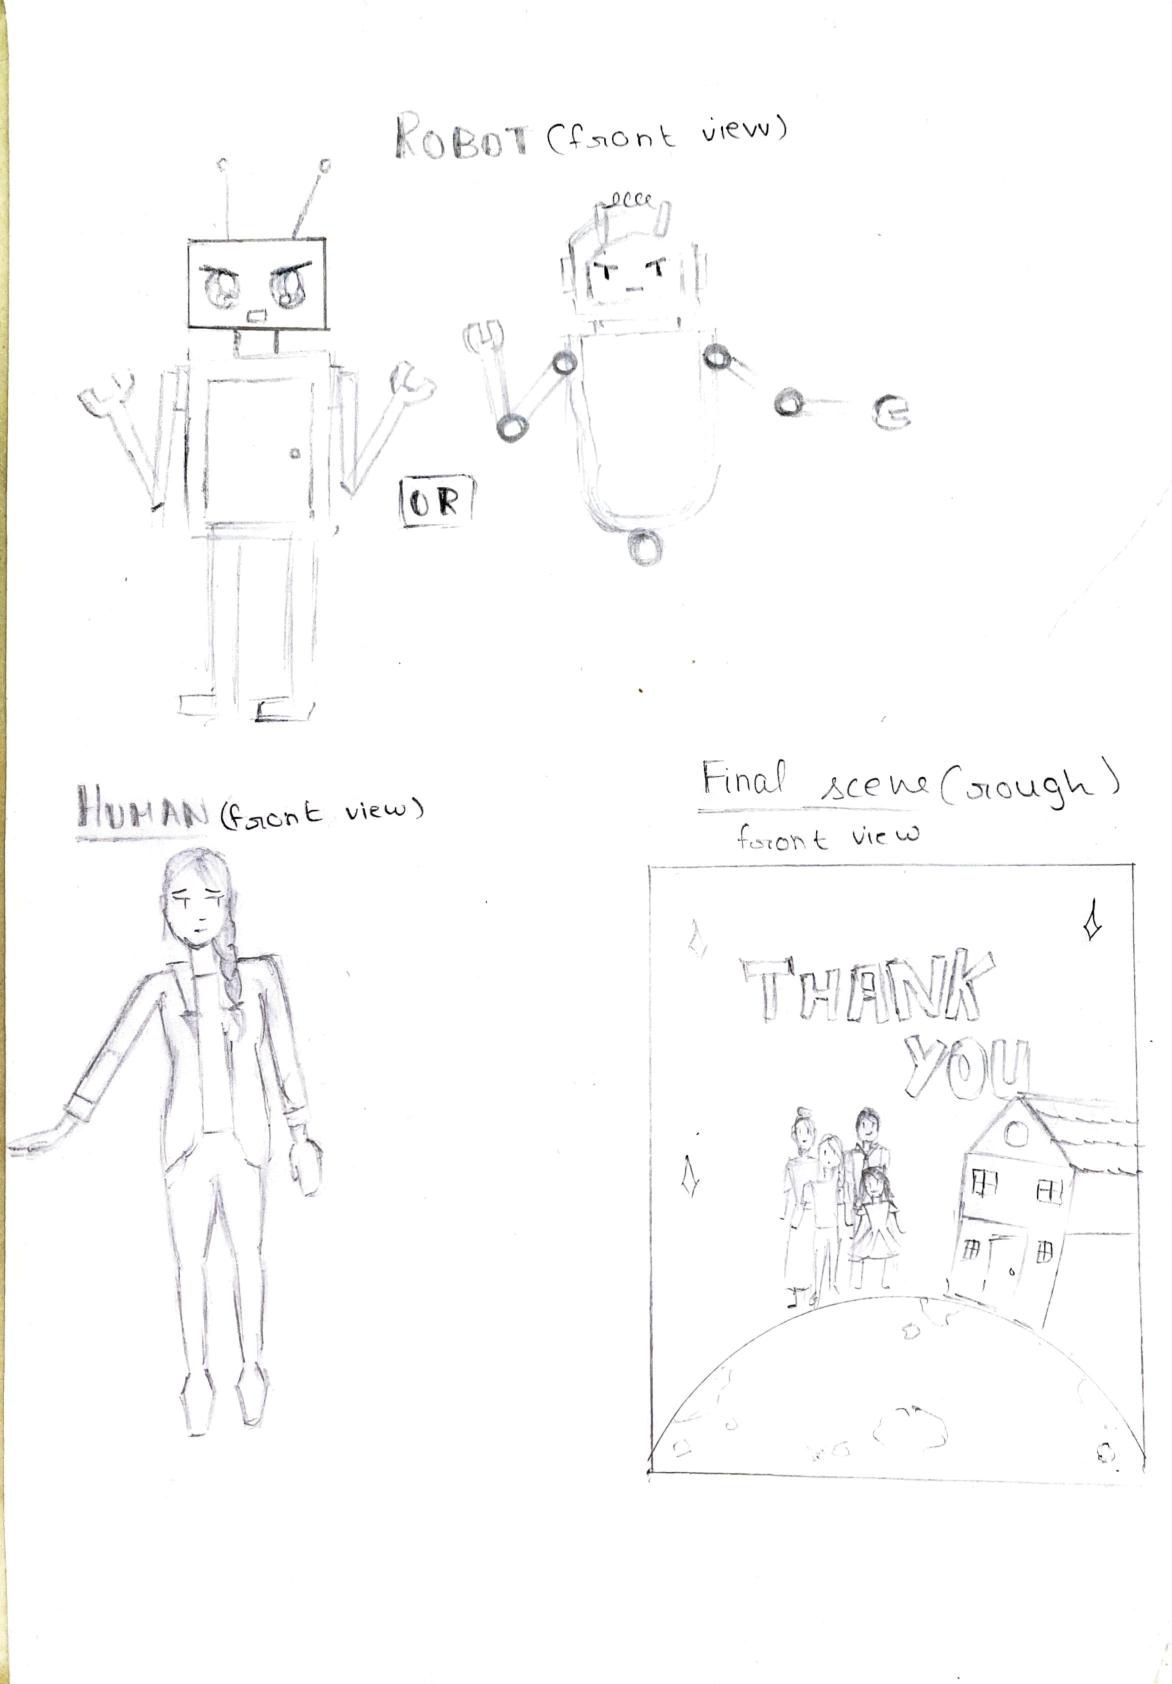 ROBOT (front view)
OR
HUMAN (front view)
Final scene (rough)
front view
THANK
YOU